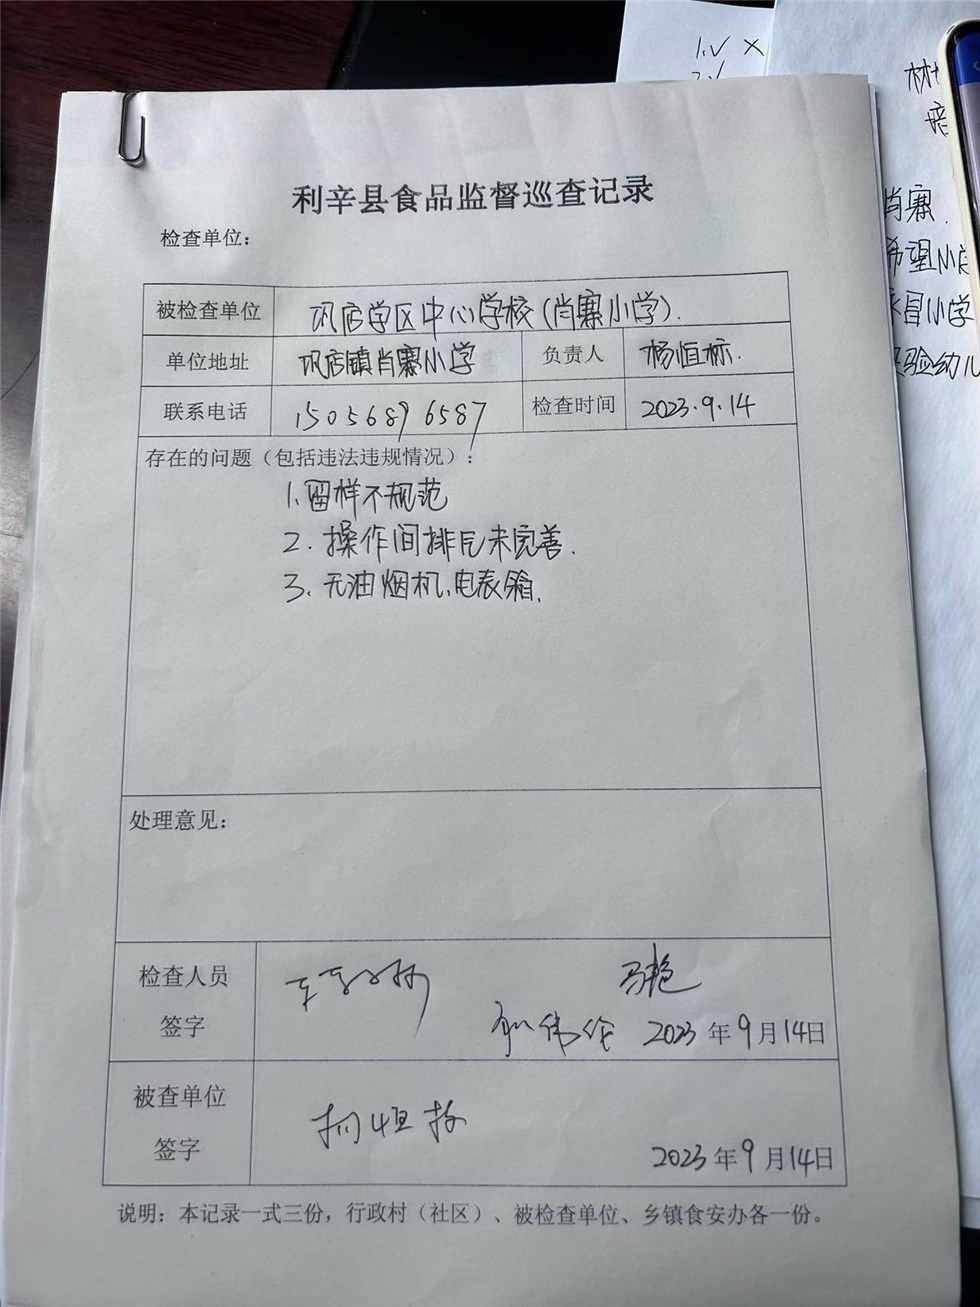 利辛县食品监督巡查记录
检查单位：
被检查单位 巩店学区中心学校(肖寨小学).
单位地址 巩店镇肖寨小学 负责人 杨恒标.
联系电话 15056896587 检查时间 2023.9.14
存在的问题（包括违法违规情况）：
1.留样不规范
2.操作间排瓦未完善.
3.无油烟机、电表箱.
处理意见：
检查人员
签字
马艳
伟伦 2023年9月14日
被查单位
签字
2023年9月14日
说明：本记录一式三份，行政村（社区）、被检查单位、乡镇食安办各一份。
1.√ ×
肖寨.
希望小
目小学
验幼儿